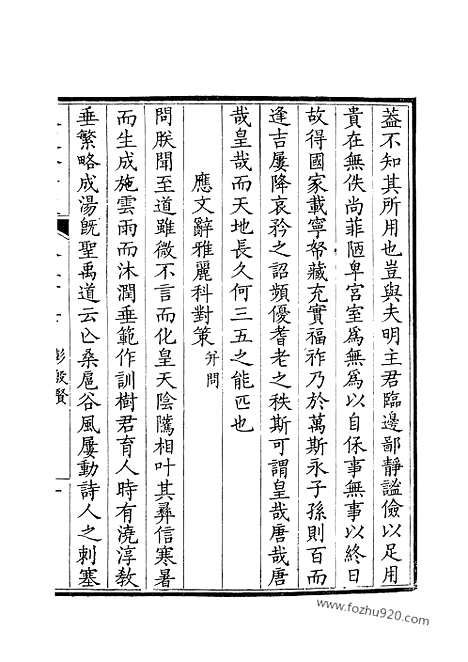 葢不知其所用也豈與夫明主君臨邊鄙靜謐儉以足用
貴在無佚尚菲陋卑宮室爲無爲以自保事無事以終日
故得國家載寧帑藏充實福祚乃於萬斯永子孫則百而
逢吉屢降哀矜之詔頻優耆老之秩斯可謂皇哉唐哉唐
哉皇哉而天地長久何三五之能匹也
應文辭雅麗科對策 幷問
問朕聞至道雖微不言而化皇天陰隲相叶其彛信寒暑
而生成施雲雨而沐潤垂範作訓樹君育人時有澆淳敎
垂繁略成湯旣聖禹道云亾桑扈谷風屢動詩人之刺塞
彭殷賢
www.fozhu920.com